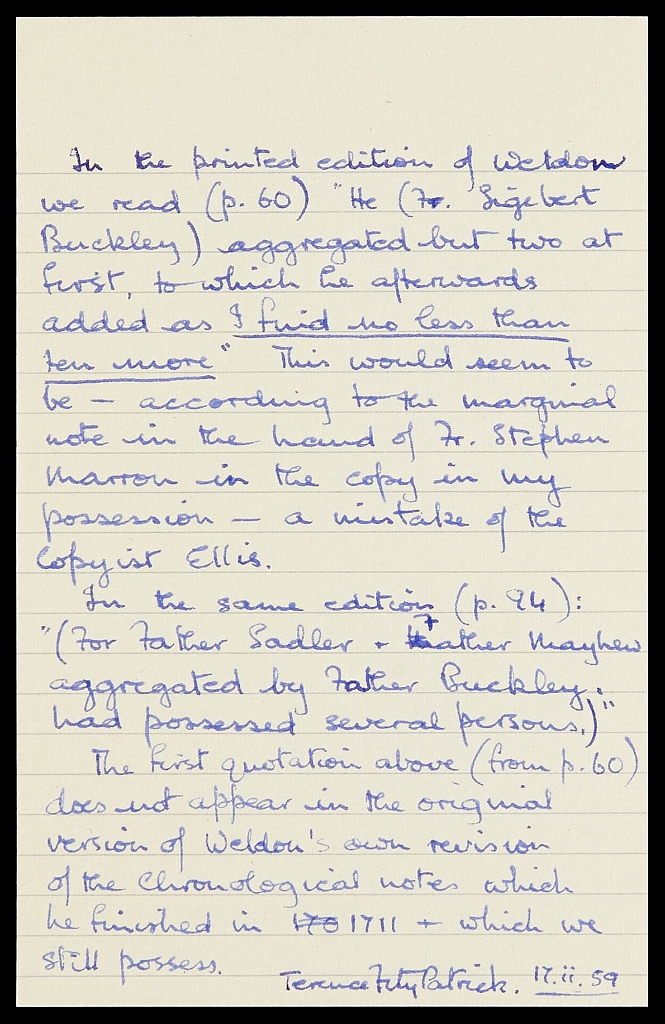 In the printed edition of Weldon
we read (p. 60) "He (Fr. Sigebert
Buckley) aggregated but two at
first, to which he afterwards
added as I find no less than
ten more" This would seem to
be — according to the marginal
note in the hand of Fr. Stephen
Marron in the copy in my
possession — a mistake of the
Copyist Ellis.
In the same edition (p. 94):
"(For Father Sadler + Father Mayhew
aggregated by Father Buckley.
had possessed several persons.)"
The first quotation above (from p. 60)
does not appear in the original
version of Weldon's own revision
of the Chronological notes which
he finished in 170 1711 + which we
still possess.
Terence FitzPatrick. 17.ii.59